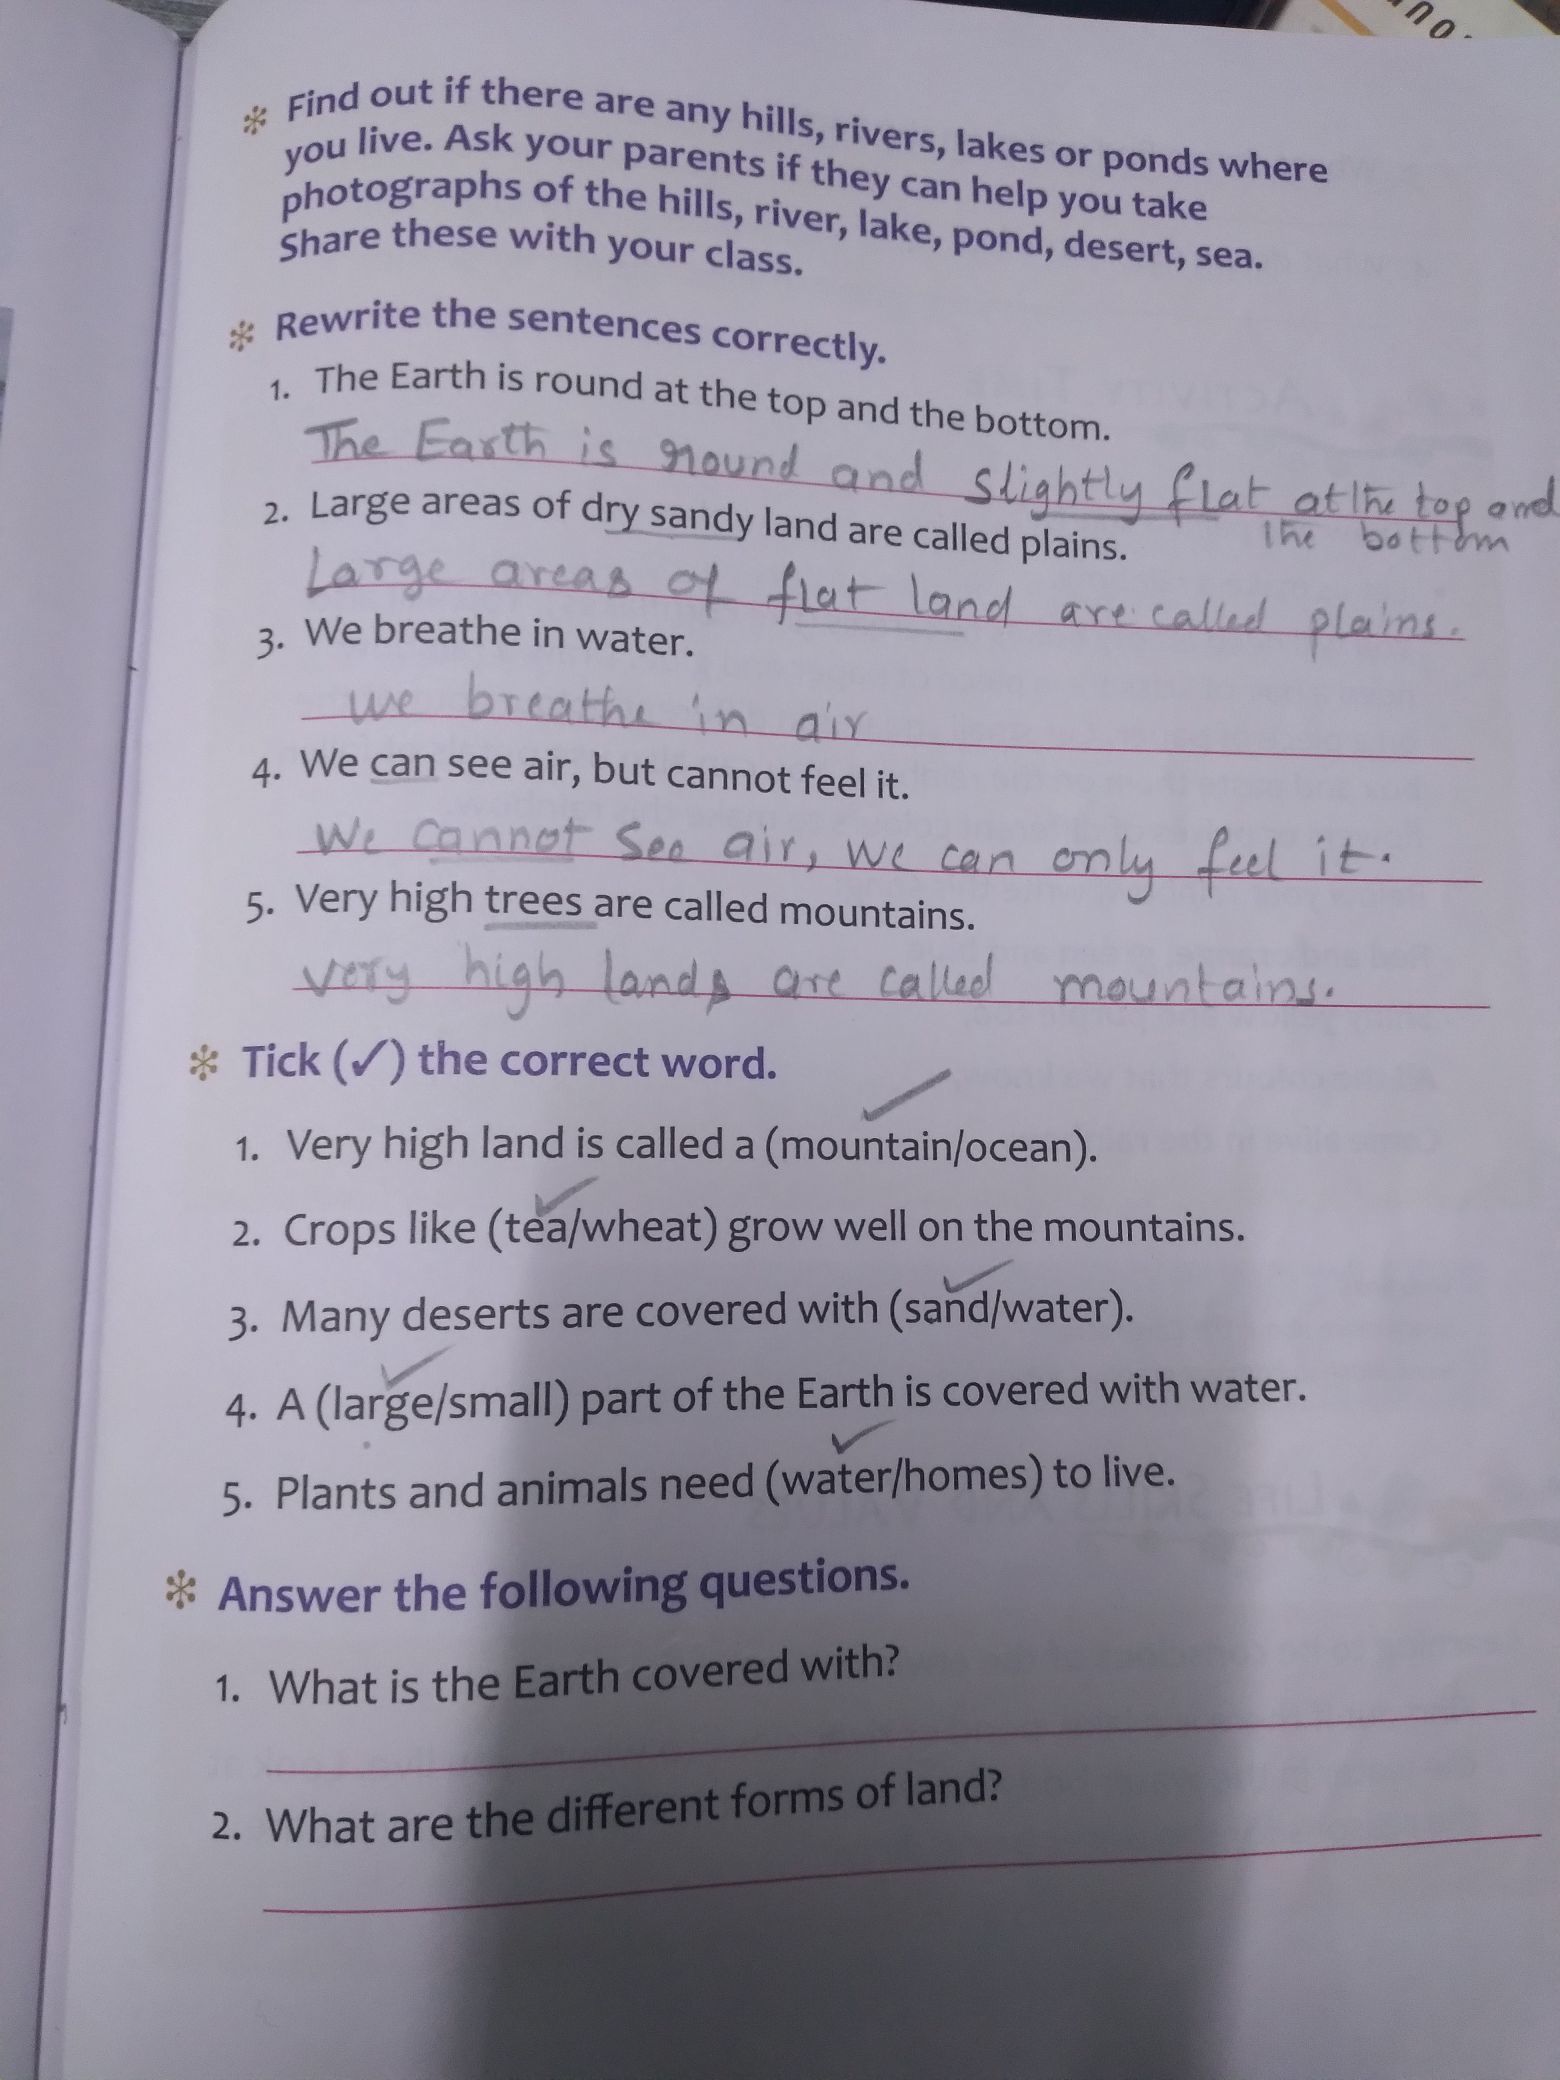 * Find out if there are any hills, rivers, lakes or ponds where
you live. Ask your parents if they can help you take
photographs of the hills, river, lake, pond, desert, sea.
Share these with your class.
* Rewrite the sentences correctly.
1. The Earth is round at the top and the bottom.
The Earth is round and slightly flat at the top and
the bottom
2. Large areas of dry sandy land are called plains.
Large areas of flat land are called plains.
3. We breathe in water.
we breathe in air
4. We can see air, but cannot feel it.
We cannot see air, we can only feel it.
5. Very high trees are called mountains.
very high lands are called mountains.
* Tick (✓) the correct word.
1. Very high land is called a (mountain/ocean).
2. Crops like (tea/wheat) grow well on the mountains.
3. Many deserts are covered with (sand/water).
4. A (large/small) part of the Earth is covered with water.
5. Plants and animals need (water/homes) to live.
* Answer the following questions.
1. What is the Earth covered with?
2. What are the different forms of land?